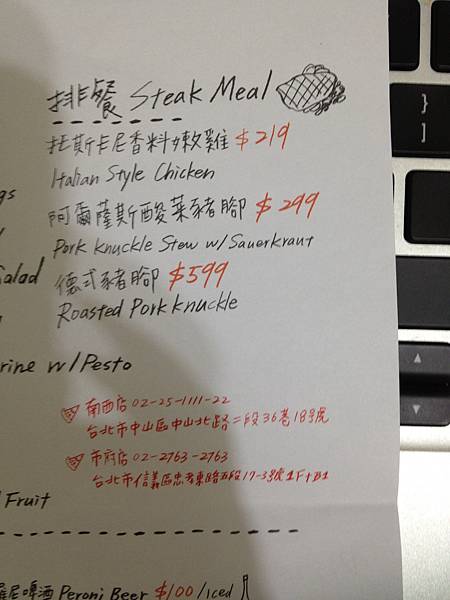 排餐 Steak Meal
托斯卡尼香料嫩雞 $219
Italian Style Chicken
阿爾薩斯酸菜豬腳 $299
Pork Knuckle Stew w/Sauerkraut
德式豬腳 $599
Roasted Pork Knuckle
gs
Salad
rine w/Pesto
南西店 02-25-1111-22
台北市中山區中山北路二段36巷18號
市府店 02-2763-2763
台北市信義區忠孝東路五段17-3號1F+B1
Fruit
尼啤酒 Peroni Beer $100/iced
}
]